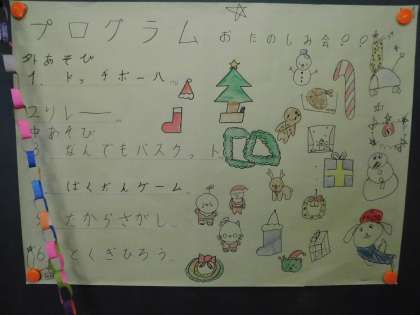 プログラム おたのしみ会!!
外あそび
1. ドッチボール
2.リレー
中あそび
なんでもバスケット
ばくだんゲーム
たからさがし
6 とくぎひろう